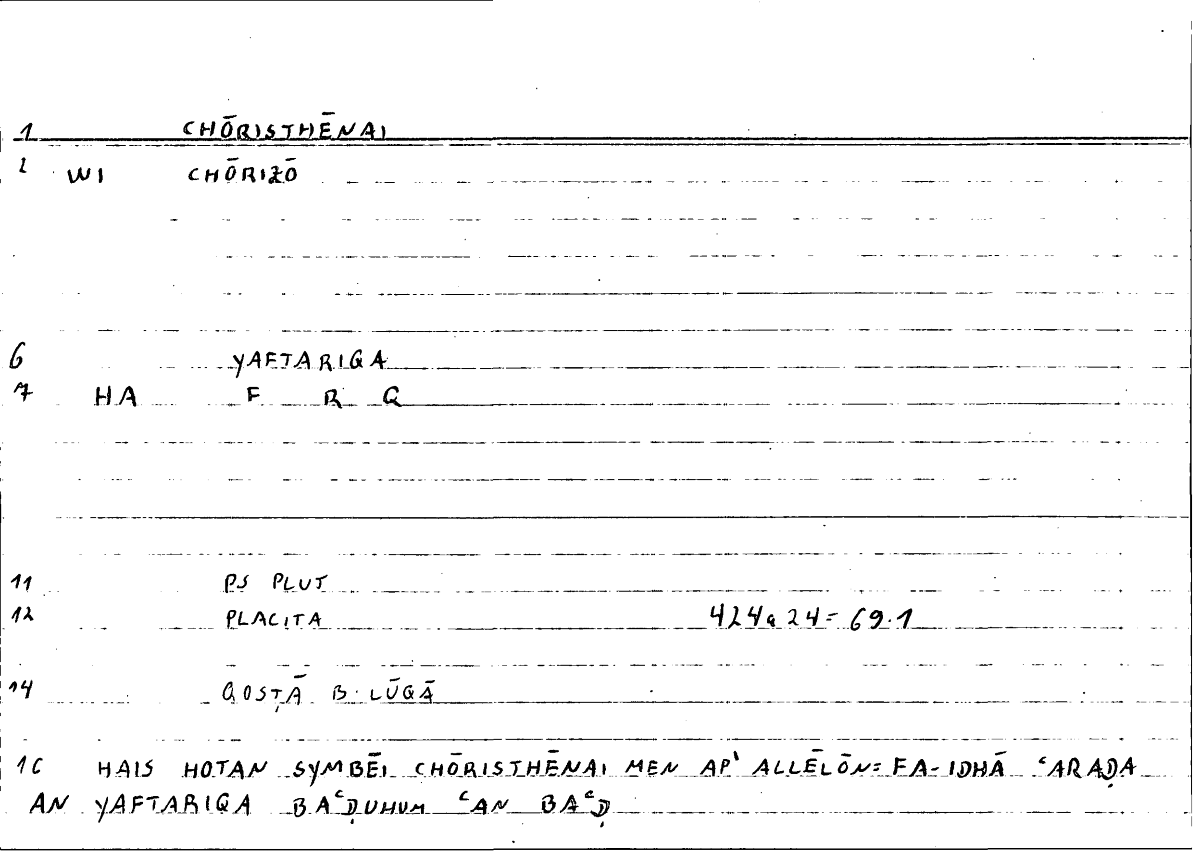 1 CHŌRISTHĒNAI
2 WI CHŌRIZŌ
6 YAFTARIQA
7 HA F R Q
11 PS PLUT
12 PLACITA 424a24=69.1
14 QOSṬĀ B. LŪQĀ
16 HAIS HOTAN SYMBĒI CHŌRISTHĒNAI MEN AP' ALLĒLŌN= FA-IDHĀ ʿARAḌA
AN YAFTARIQA BAʿḌUHUM ʿAN BAʿḌ